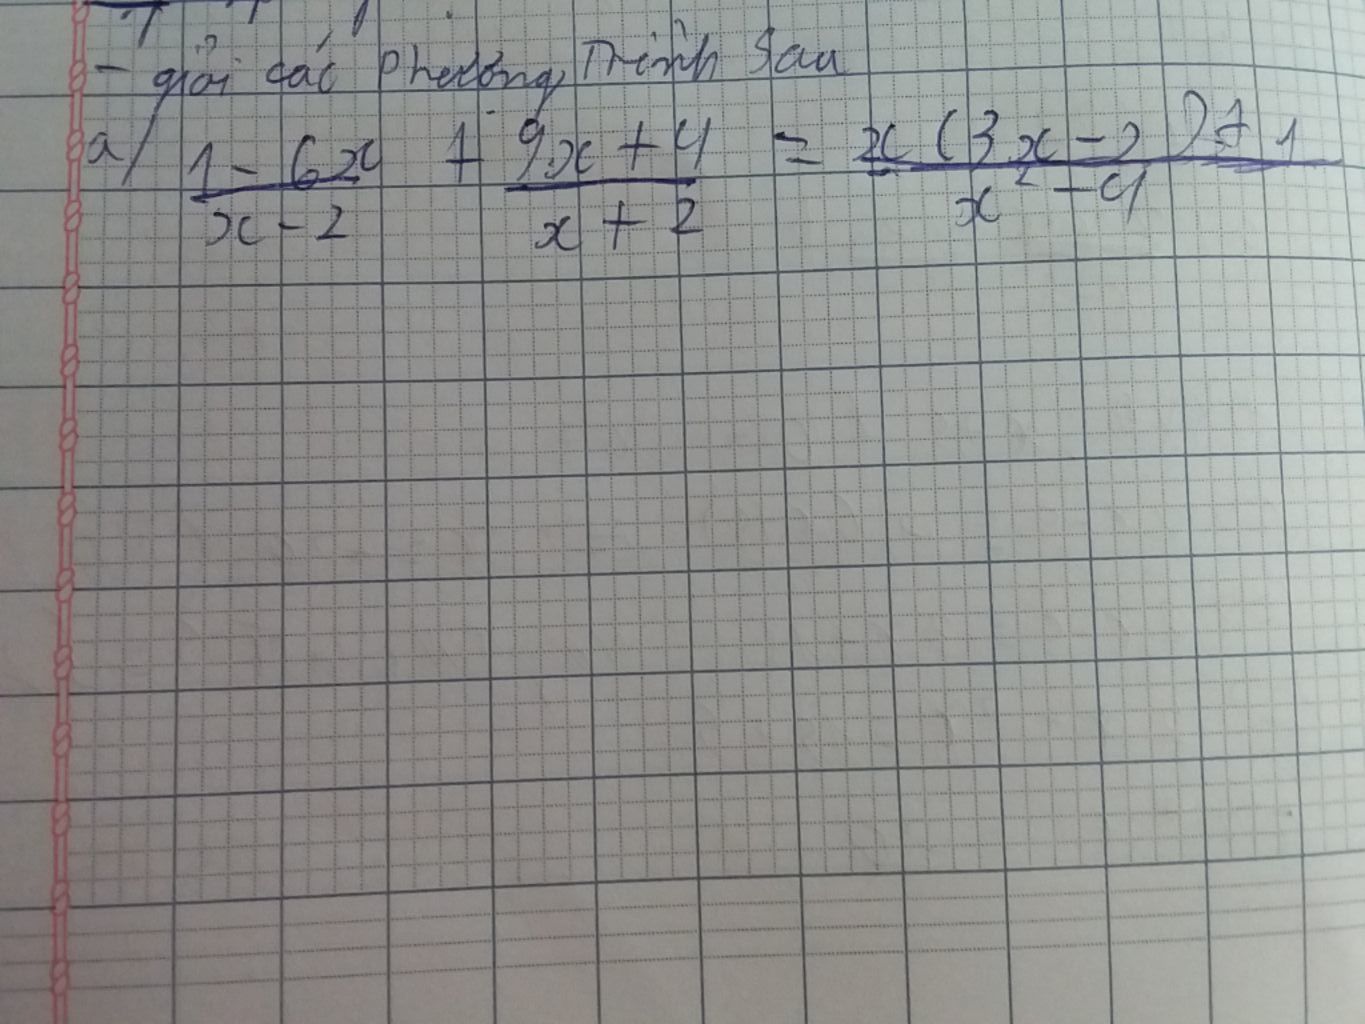 - giải các phương Trình sau
a/ (1 - 6x)/(x - 2) + (9x + 4)/(x + 2) = (x(3x - 2) + 1)/(x² - 4)